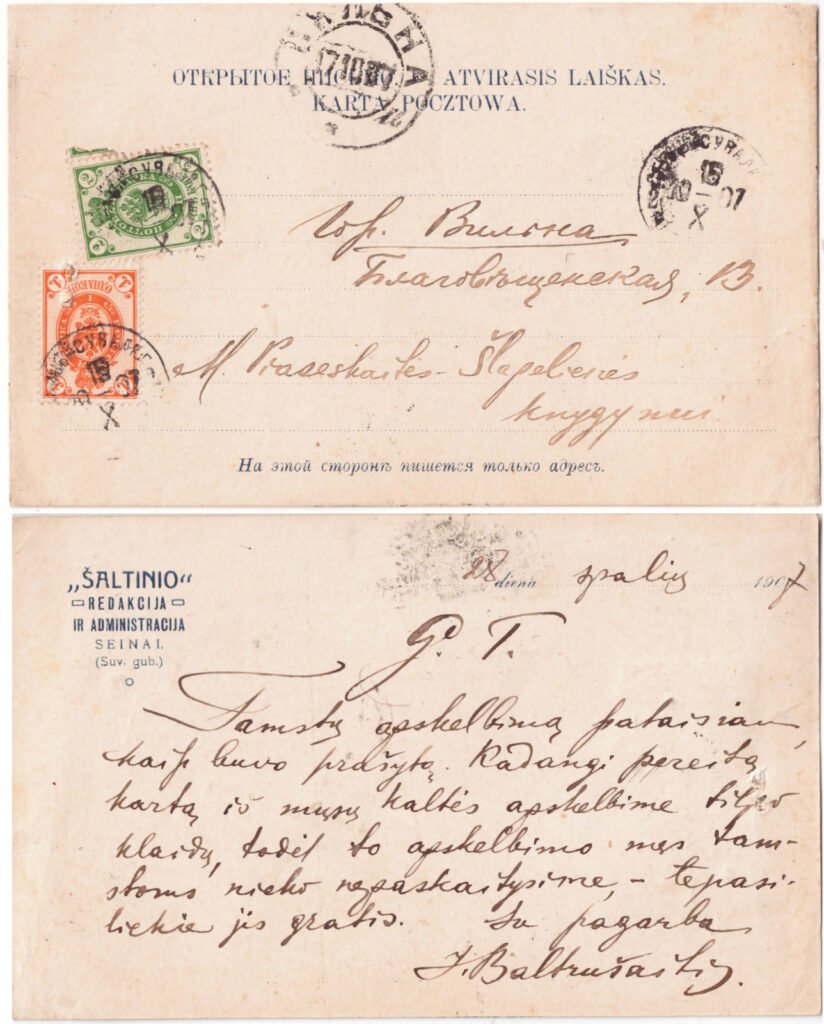 ОТКРЫТОЕ ПИСЬМО. ATVIRASIS LAIŠKAS.
KARTA POCZTOWA.
ВИЛЬНА
171007
15
X
07
2
2
15
X
1
1
15
07
X
Гор. Вильна
Благовѣщенская, 13.
M. Piaseskaitės-Šlapelienės
knygynui
На этой сторонѣ пишется только адресъ.
„ŠALTINIO“
REDAKCIJA
IR ADMINISTRACIJA
SEINAI.
(Suv. gub.)
diena spalių 1907
G. T.
Tamstų apskelbimą pataisiau,
kaip buvo prašyta. Kadangi pereitą
kartą iš mųsų kaltės apskelbime tilpo
klaidų, todėl to apskelbimo mes tam-
stoms nieko nepaskaitysime, – tepasi-
liekie jis gratis. Su pagarba
J. Baltrušaitis.